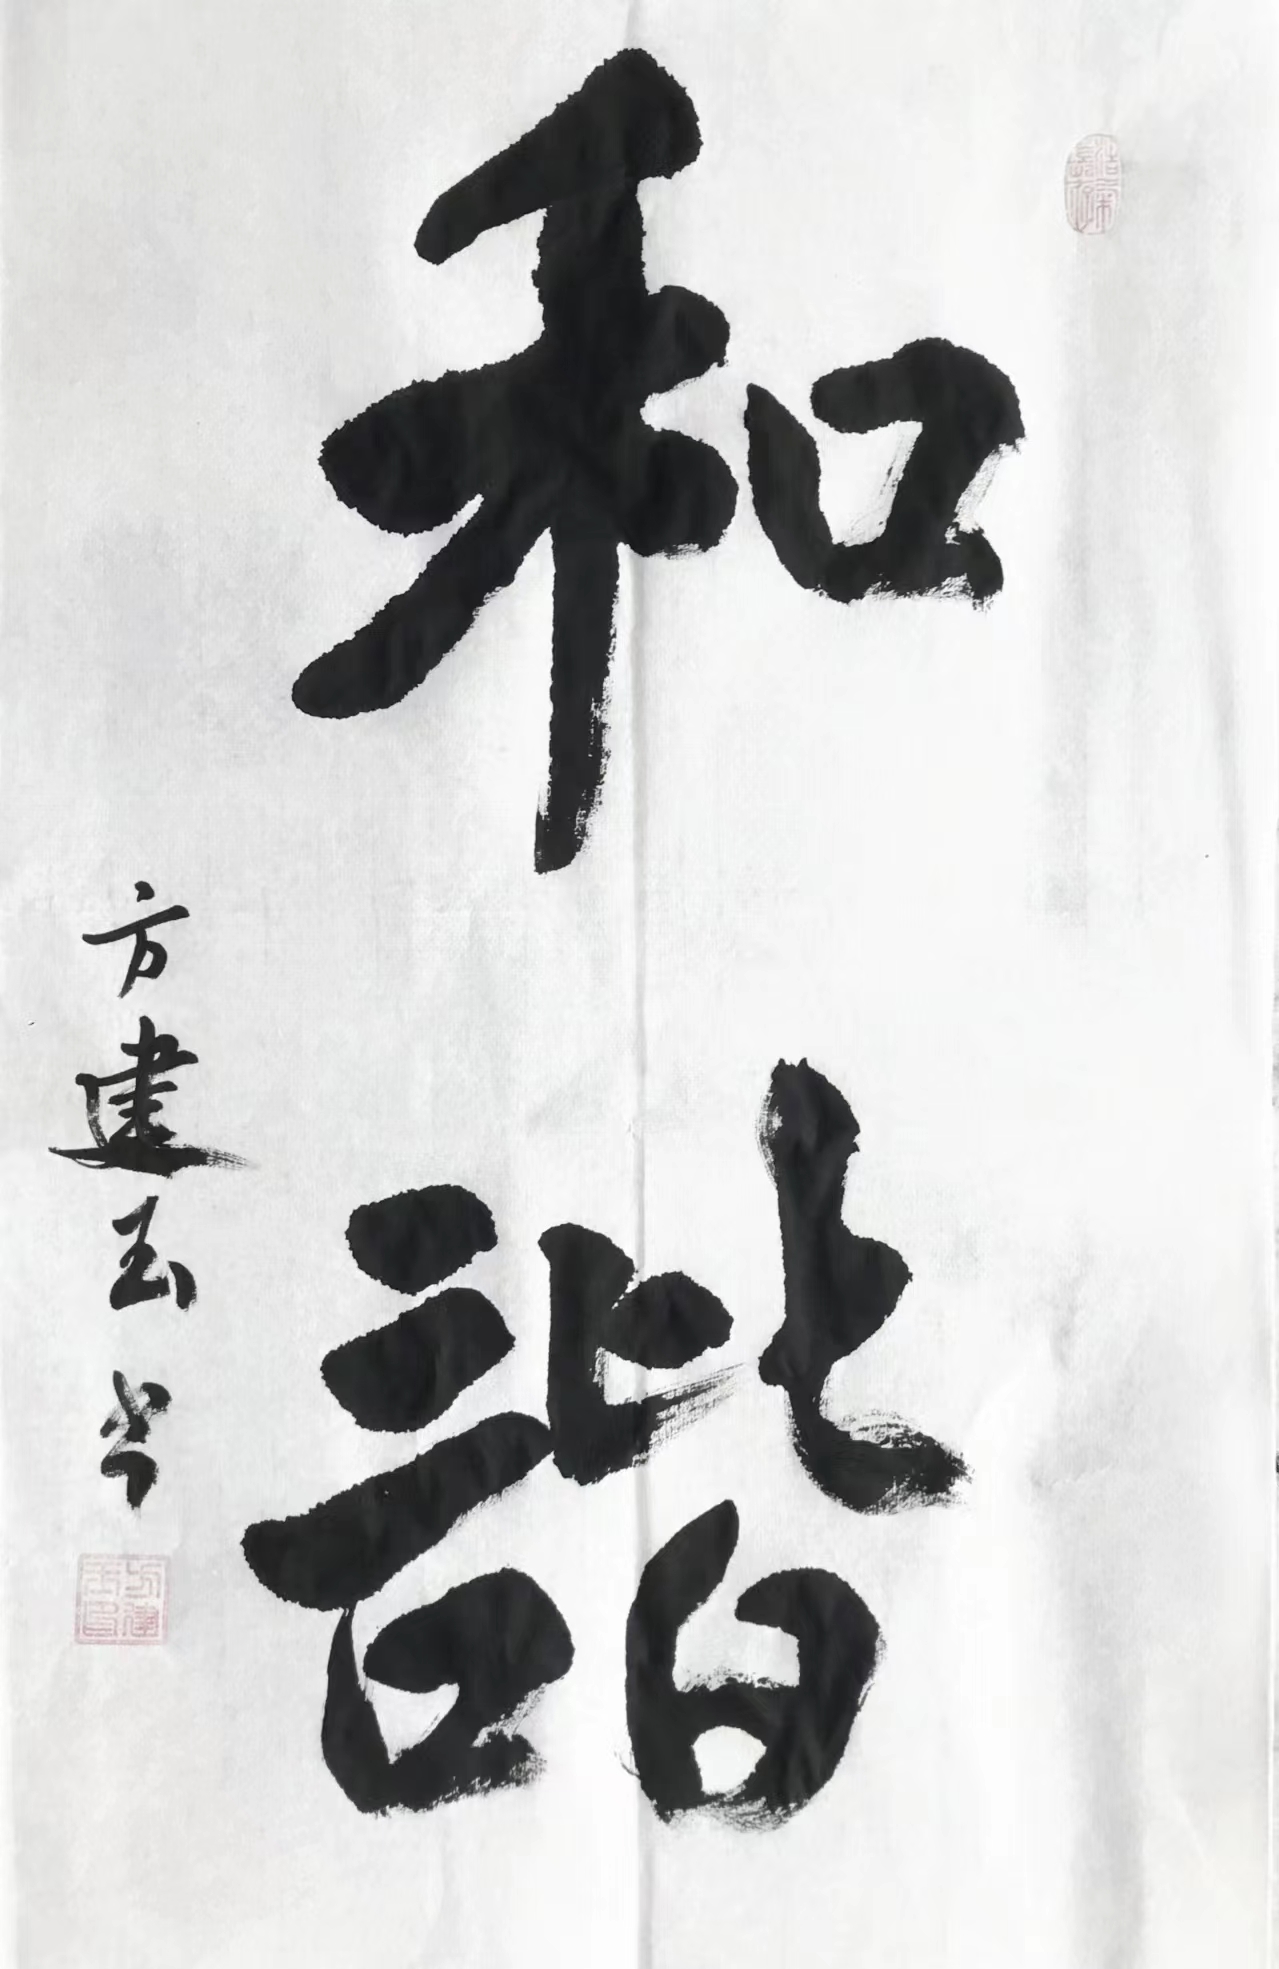 和諧
方建玉书